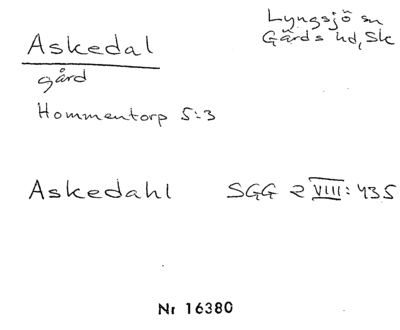 Askedal
Lyngsjö sn
Gärds hd, Sk
gård
Hommentorp 5:3
Askedahl SGG 2 VIII: 435
Nr 16380